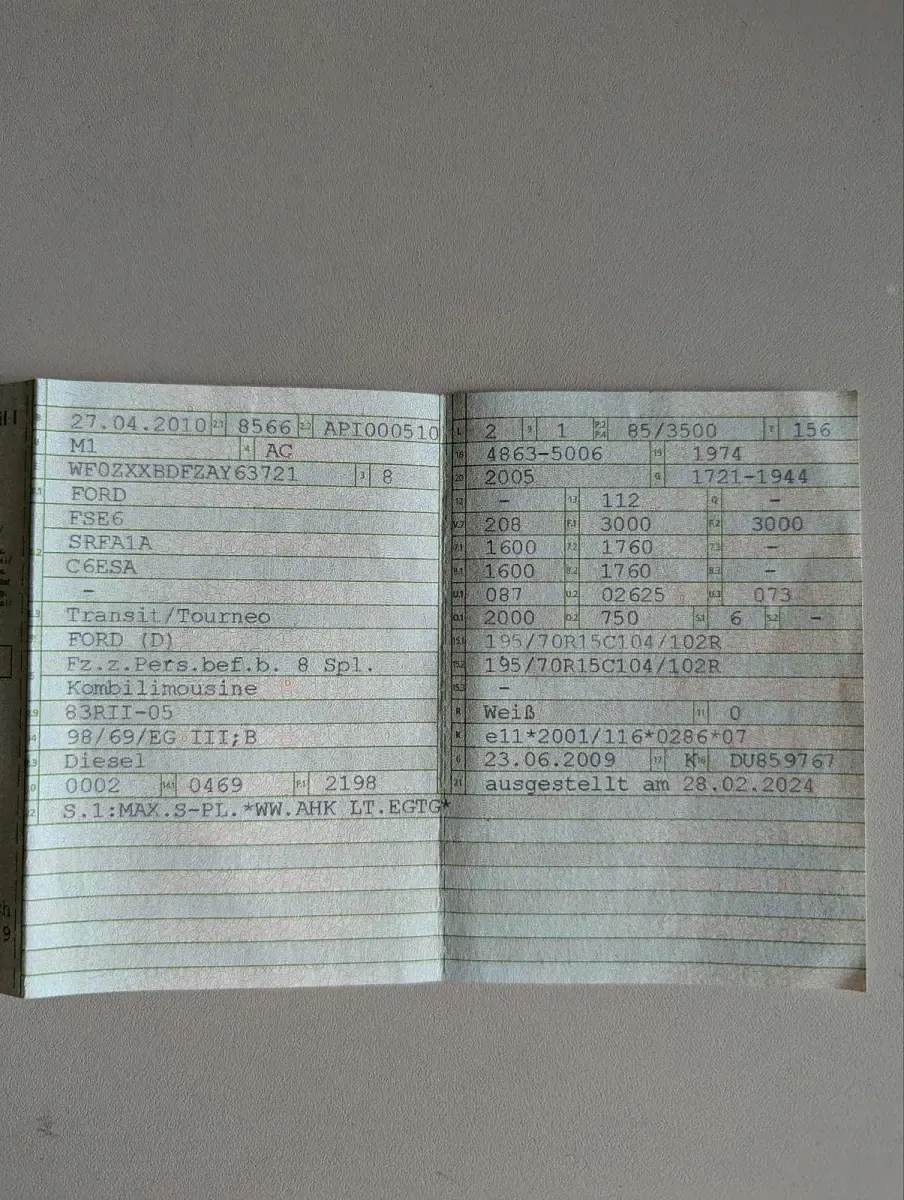 27.04.2010 2.1 8566 2.2 API000510
M1 4 AC
WF0ZXXBDFZAY63721 3 8
FORD
FSE6
SRFA1A
C6ESA
–
Transit/Tourneo
FORD (D)
Fz.z.Pers.bef.b. 8 Spl.
Kombilimousine
83RII-05
98/69/EG III;B
Diesel
0002 14.1 0469 P.1 2198
S.1:MAX.S-PL.*WW.AHK LT.EGTG*
L 2 9 1 P.2 P.4 85/3500 T 156
18 4863-5006 19 1974
20 2005 G 1721-1944
12 – 13 112 Q –
V.7 208 F.1 3000 F.2 3000
7.1 1600 7.2 1760 7.3 –
8.1 1600 8.2 1760 8.3 –
U.1 087 U.2 02625 U.3 073
O.1 2000 O.2 750 S.1 6 S.2 –
15.1 195/70R15C104/102R
15.2 195/70R15C104/102R
15.3 –
R Weiß 11 0
K e11*2001/116*0286*07
6 23.06.2009 17 K 16 DU859767
21 ausgestellt am 28.02.2024